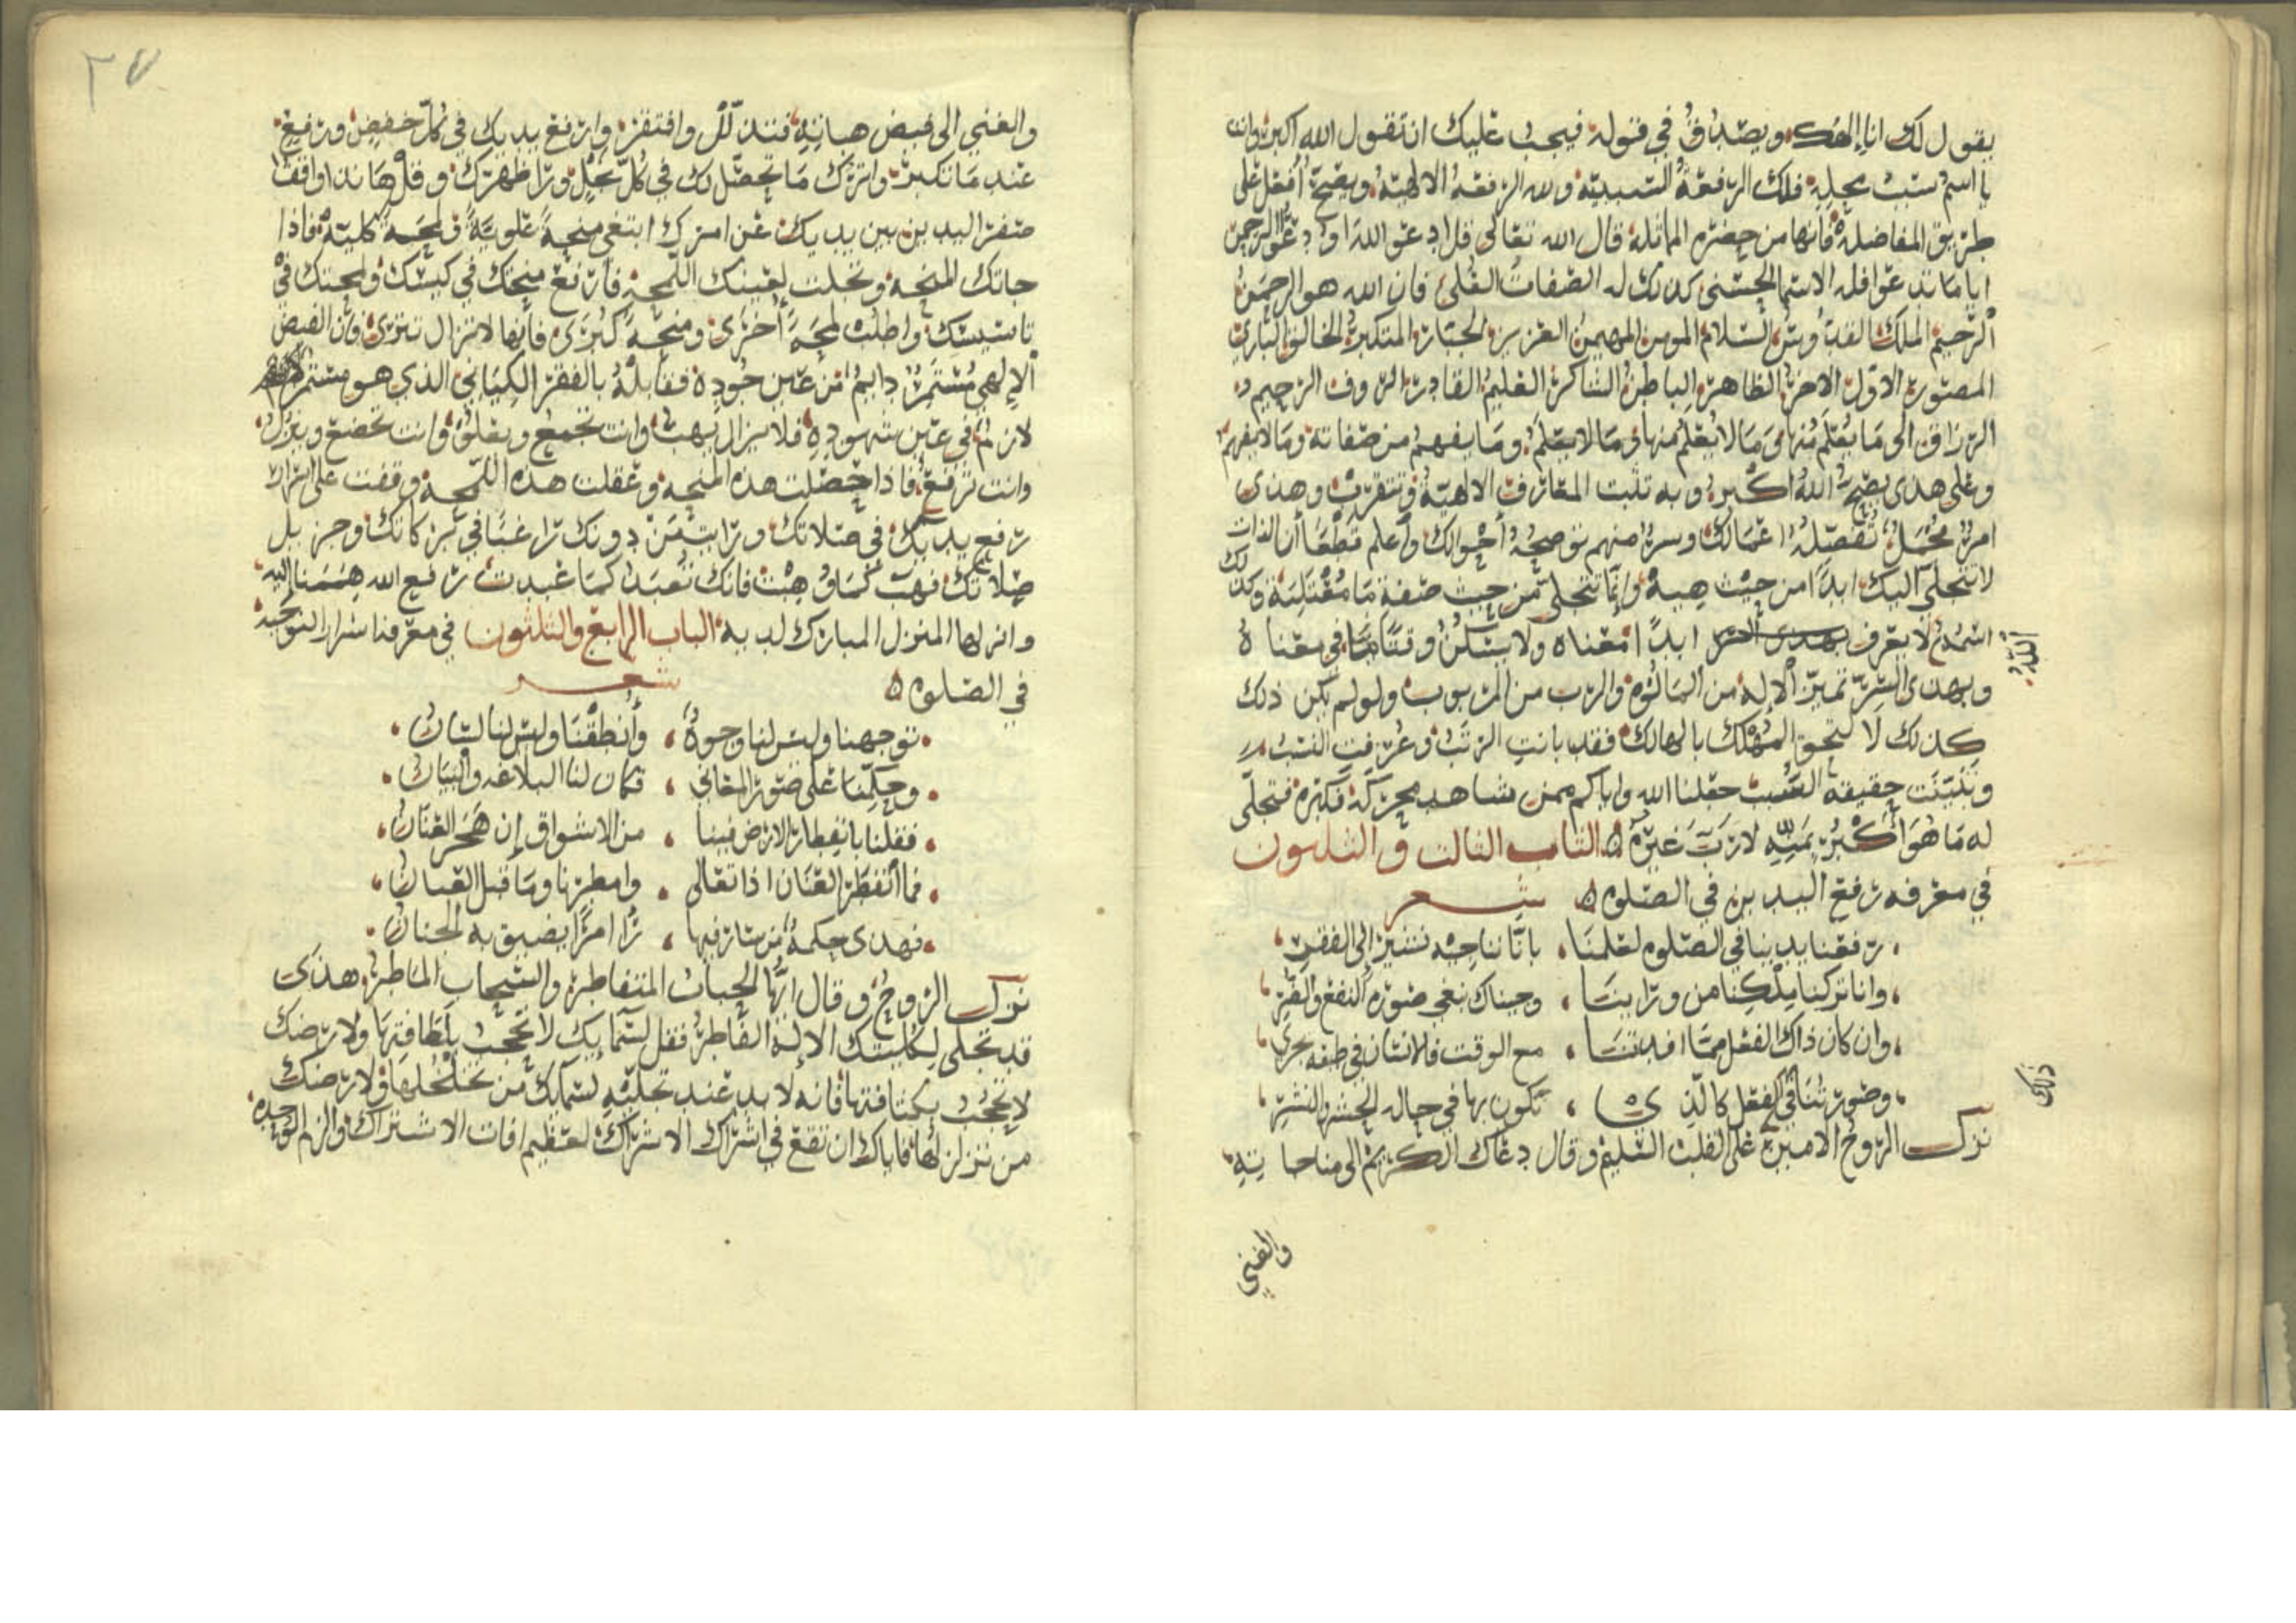 يقول لك انا إلهك ويصدق في قوله فيجب عليك ان تقول الله اكبر وان
يا اسم ست بجليه فلك الرفعة السببية ولله الرفعة الالهية ويصح أفعل على
طريق المفاضلة فانها من حضره المماثله قال الله تعالى قل ادعو الله او دعو الرحمن
ايا ما تدعوا فله الاسما الحسنى كذلك له الصفات العلى فان الله هو الرحمن
الرحيم الملك القدوس السلام المومن المهيمن العزيز الجبار المتكبر الخالق الباري
المصور الاول الاخر الظاهر الباطن الشاكر العليم القادر الروف الرحيم
الرزاق الى ما يعلم منها وما لا يعلم منها وما لا يعلم وما يفهم من صفاته وما لا يفهم
وعلى هذى يصح الله اكبر وبه تثبت المعارف الالهية وتتقرب وهذى
امر مجمل تفصله اعمالك وسر مبهم توضحه أحوالك وأعلم قطعا أن الذات
لا تتجلى اليك ابدا من حيث هيه وإنما تتجلى من حيث صفة ما معتليه وكذلك
اسم الله لا يعرف ابدا معناه ولا يسكن وقتا ما في معناه
وبهذى السر تميز الإله من المالوه والرب من المربوب ولو لم يكن ذلك
كذلك لا لتحق المهلك بالهالك فقد بانت الرتب وعرفت النسب
وتبينت حقيقه السبب جعلنا الله واياكم ممن شاهد محركه فكبره فتجلى
له ما هو أكبر بميه لا رب غيره الباب الثالث والثلثون
في معرفه رفع اليدين في الصلوه شعر
رفعنا يدينا في الصلوه لعلمنا بانا تناجيه نشير إلى الفقر
وانا تركنا ملكنا من وراينا وجيناك نبغي صوره النفع والضر
وان كان ذاك الفعل مما افدتنا مع الوقت فالانسان في طبعه يجري
وصورتنا في الفعل كالذي تكون بها في حاله الحشر والنشر
نزل الروح الامين على القلب السليم وقال دعاك الكريم الى مناجاتيه
ذلك
والغني
٣٧
والغني الى فيض هباتيه فتذلل وافتقر وارفع يديك في كل خفض ورفع
عند ما تكبر واترك ما تحصل لك في كل تجل ورا ظهرك وقل هانذا واقفا
صفر اليدين بين يديك عن امرك ابتغي منحة علوية ولمحه كليته فاذا
جاتك المنحه وتجلت لعينك اللمحه فارفع منحتك في كيسك ولمحتك في
تاسيسك واطلب لمحة أخرى ومنحة كبرى فانها لا تزال تترى وان الفيض
ألإلهي مستمر دايم من عين جوده فقابله بالفقر الكياني الذي هو مستمر
لازم في عين شهوده فلا يزال يهب وانت تجمع ويعلو وانت تخضع وينزل
وانت ترفع فاذا حصلت هذه المنحه وعقلت هذه اللمحه وقفت على اسرار
رفع يديك في صلاتك ورايت من دونك راغبا في بركاتك وجزيل
صلاتك فهب كما وهبت فانك تعبد كما عبدت رفع الله هممنا اليه
وانزلها المنزل المبارك لديه الباب الرابع والثلثون في معرفة اسرار التوجيه
في الصلوه شعر
توجهنا وليس لنا وجوه وأنطقنا وليس لنا لسان
وحكمنا على صور المعاني فكان لنا البلاغه والبيان
فقلنا بانفطار الارض فينا من الاشواق إن هجر العنان
فما أنفطر العنان اذا تعالى وامطرنا وما قبل العيان
فهذى حكمة من سار فيها را امرا يضيق به الجنان
نزل الروح وقال ايها الجبات المتفاطر والسحاب الماطر هذى
قد تجلى لكليتك الإله الفاطر فقل لسمايك لا تحجب بلطافتها ولارضك
لا تحجب بكثافتها فانه لا بد عند تجليه لسمائك من تخلخلها ولارضك
من تزلزلها فاياك ان تقع في اشراك الاشراك لعظيم افات الاشتراك والزم التوحيد